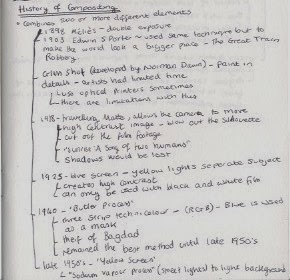 History of Compositing
* combines 500 or more different elements
1898 Méliès - double exposure
1903 Edwin S Porter - used same technique but to
make the world look a bigger place - The Great Train
Robbery.
Glass Shot (developed by Norman Dawn) - paint in
details - artists had limited time
Use optical printers sometimes
there are limitations with this
1918 - travelling Matte, allows the camera to move
high contrast image - wow out the silhouette
cut out the film footage
"Sunrise: A Song of two humans"
Shadows would be lost
1925 - blue screen - yellow lights seperate subject
creates high contrast
can only be used with black and white film
1940 - "Butler Process"
three strip technicolour - (RGB) - Blue is used
as a mask
thief of Bagdad
remained the best method until late 1950's
late 1950's - "Yellow Screen"
"Sodium vapour Process" (street lights) to light background